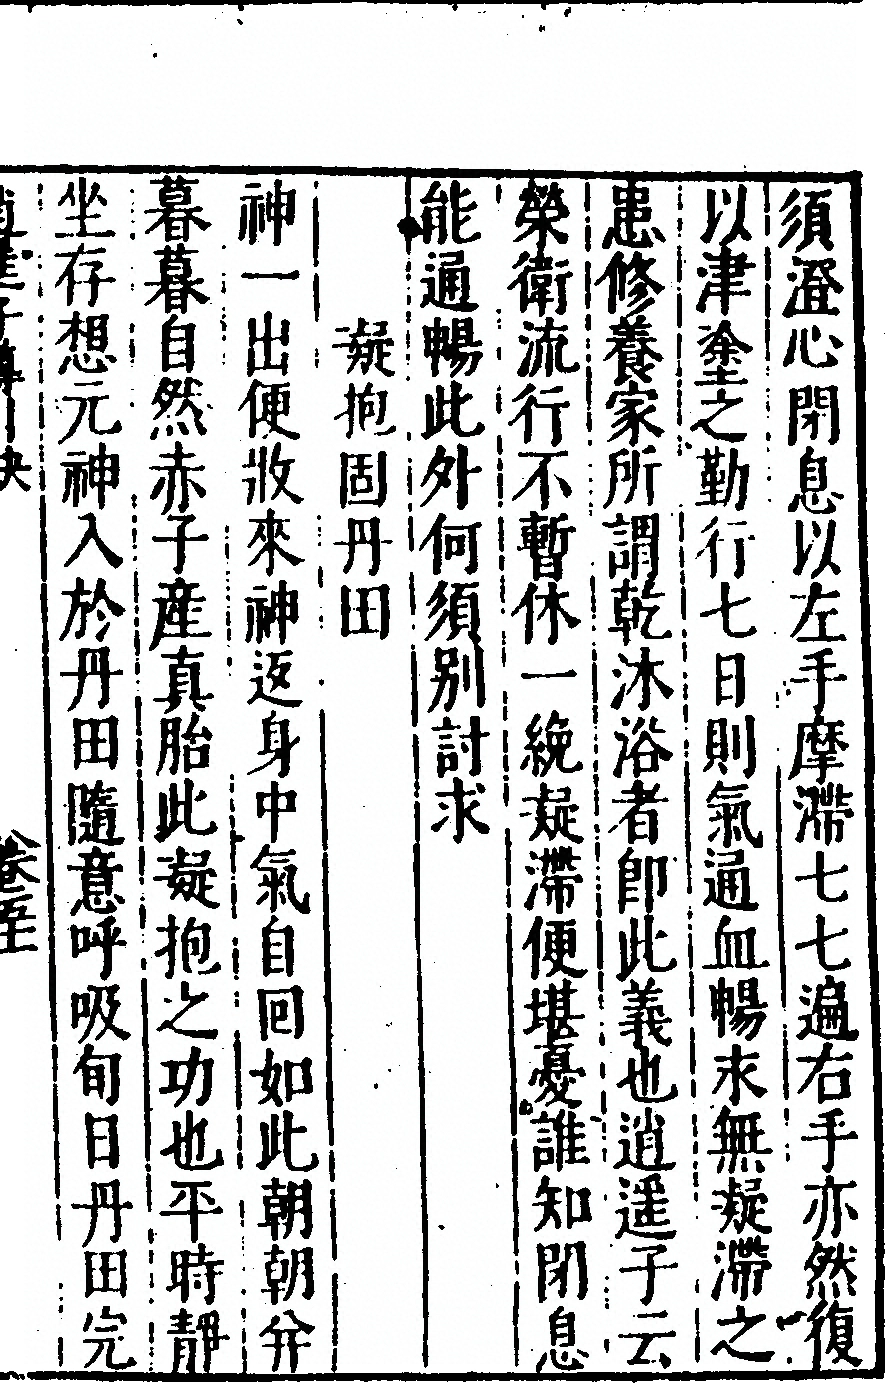 須澄心閉息以左手摩滯七七遍右手亦然復
以津塗之勤行七日則氣通血暢永無凝滯之
患修養家所謂乾沐浴者即此義也逍遥子云
榮衛流行不暫休一纔凝滯便堪憂誰知閉息
能通暢此外何須别討求
凝抱固丹田
神一出便收來神返身中氣自回如此朝朝并
暮暮自然赤子産真胎此凝抱之功也平時靜
坐存想元神入於丹田隨意呼吸旬日丹田完
逍遥子導引訣
卷五